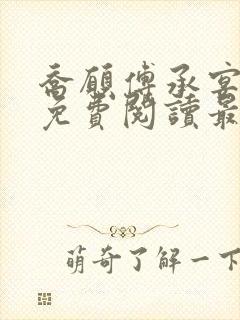 喬願傅承宴
免費閱讀最
萌奇了解一下